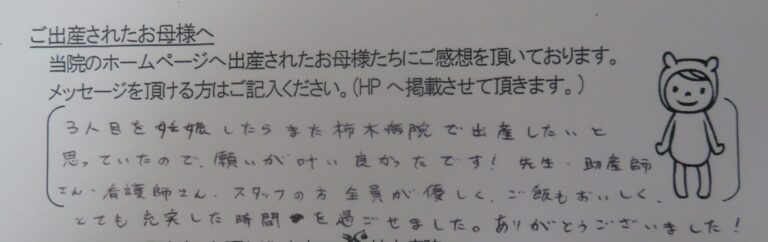 ご出産されたお母様へ
当院のホームページへ出産されたお母様たちにご感想を頂いております。
メッセージを頂ける方はご記入ください。(HPへ掲載させて頂きます。)
3人目を妊娠したらまた柿木病院で出産したいと
思っていたので、願いが叶い良かったです! 先生・助産師
さん・看護師さん、スタッフの方全員が優しく、ご飯もおいしく、
とても充実した時間を過ごせました。ありがとうございました!